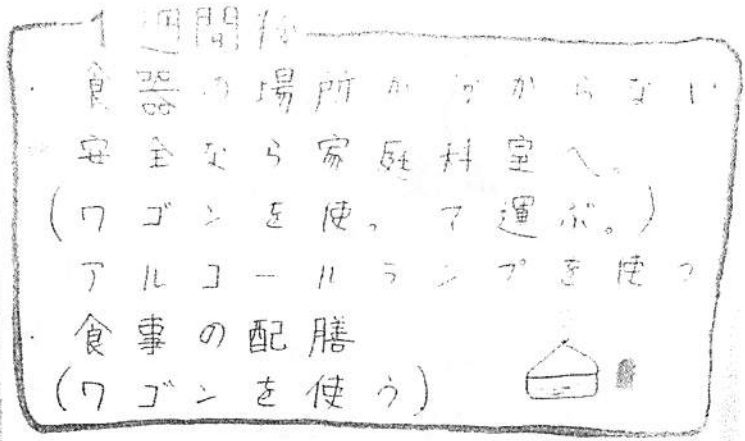 1週間後
・食器の場所がわからない
安全なら家庭科室へ。
(ワゴンを使って運ぶ。)
アルコールランプを使う
・食事の配膳
(ワゴンを使う)